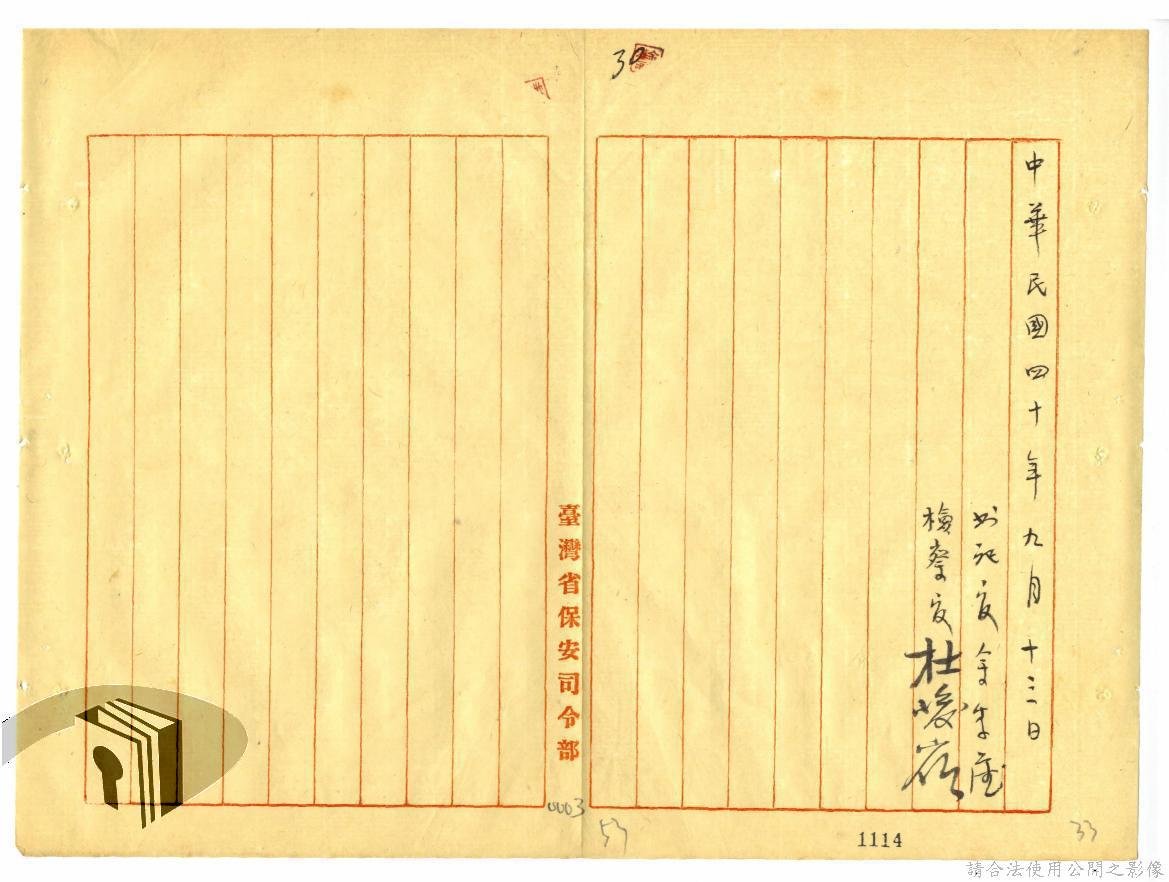 39
中華民國四十年九月十三日
檢察官 杜嶺
臺灣省保安司令部
0003
53
1114
33
請合法使用公開之影像